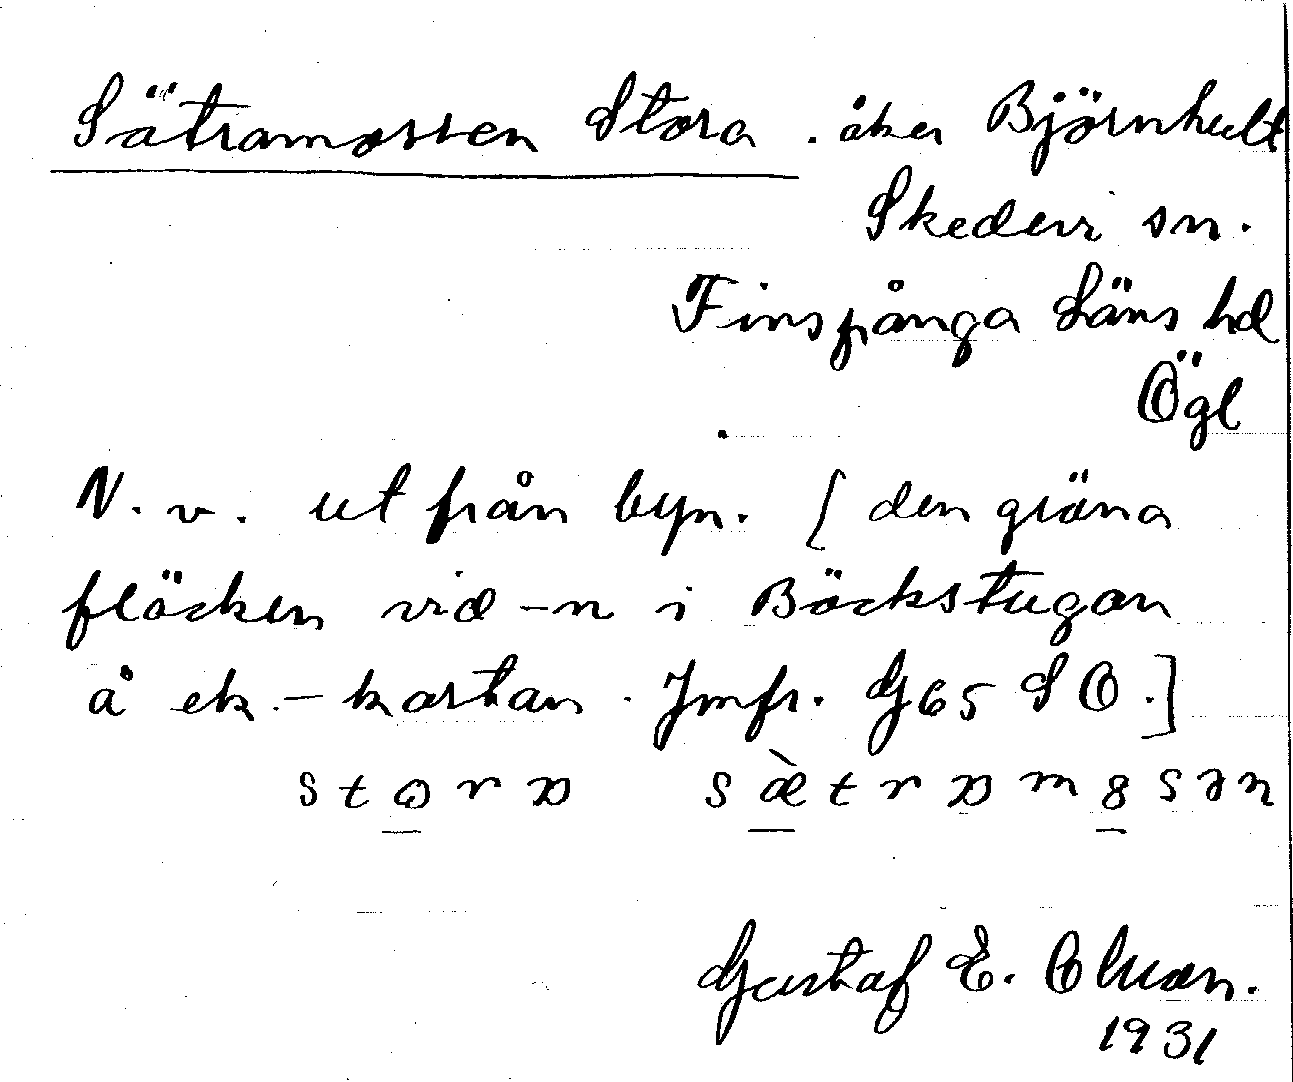 Sätramossen Stora . åker Björnhult
Skedevi sn.
Finspånga Läns hd
Ögl
N. v. ut från byn. [den gröna
fläcken vid -n i Bäckstugan
å ek. - kartan. Jmfr. G65 S O.]
Gustaf E.
1931